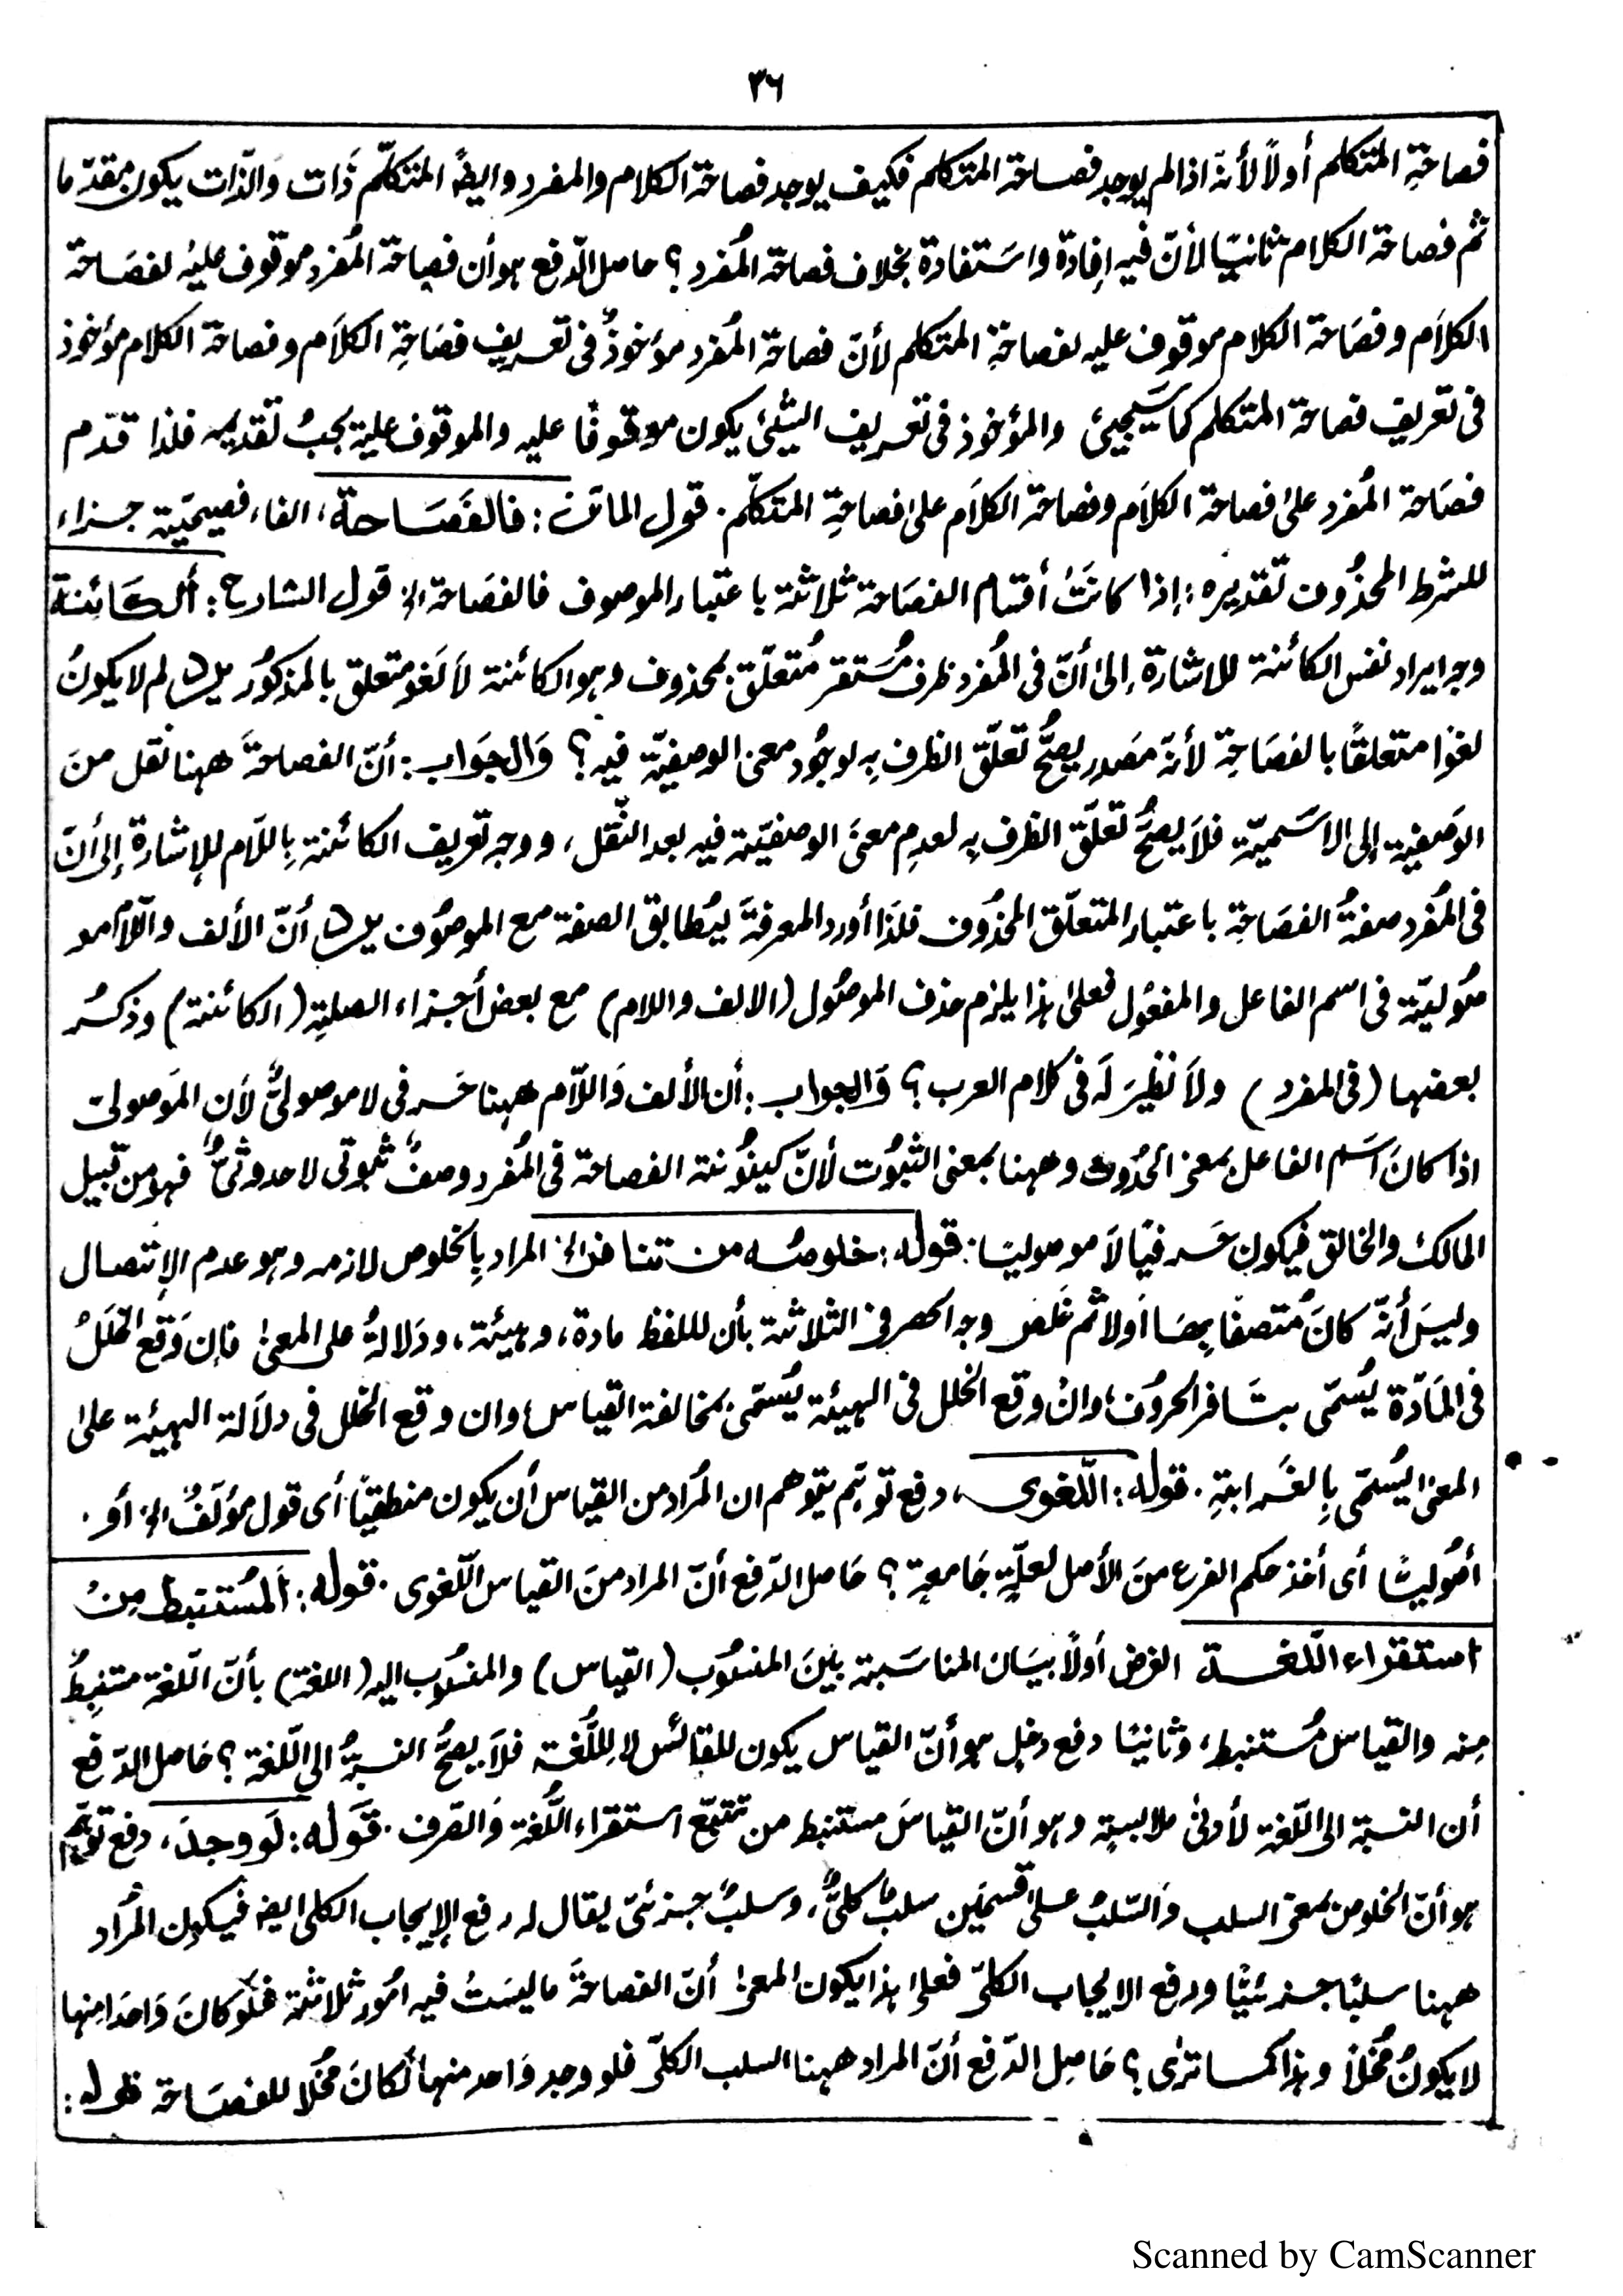 ٣٦
فصاحةِ المتكلم أولاً لأنهّ اذالم يوجد فصاحة المتكلم فكيف يوجد فصاحة الكلام والمفرد وايضاً المتكلّم ذَات وَالذّات يكون مقدّما
ثم فصاحة الكلام ثانيًا لأنّ فيه اِفادة واستفادة بخلاف فصاحة المُفرد؟ حاصل الدّفع هو أن فصاحة المُفرد موقوف عليْه لفصَاحة
الكلاَم وفصَاحة الكلام موقوف عليه لفصاحةِ المتكلم لأنّ فصاحة المُفرد مؤخوذٌ فى تعريفِ فصَاحةِ الكلاَم وفصاحة الكلام مؤخوذ
فى تعريفِ فصاحة المتكلم كما سَيجيئ والمؤخوذ فى تعريف الشيْئ يكون موقوفًا عليه والموقوف عليهِ يجبُ تقديمه فلذا قدّم
فصَاحة المُفرد علىٰ فصاحة الكلاَم وفصاحة الكلاَم علىٰ فصاحةِ المتكلّم. قول الماتن: فالفَصَاحة، الفاء فصيحيّة جزاء
للشرط المحذُوف تقديره: إذا كانَتْ أقسام الفصَاحة ثلاثة باعتبار الموصوف فالفصَاحة الخ قول الشارح: ألكَائِنة
وجه ايراد نفس الكائنة للاشارة إلىٰ أنّ فى المُفرد ظرف مُستقر مُتعلّق بمحذوف وهو الكائنة لاَ لَغو متعلق بالمذكوُر يرد لم لا يكونُ
لغوًا متعلقًا بالفصَاحةِ لأنهّ مَصدر يصحُّ تعلّق الظرف بِه لوجُود معنى الوصفيّة فيه؟ وَالجوَاب: أنّ الفصاحةَ ههنا نُقل منَ
الوصَفيةِ إلى الاسَميّة فلاَ يصحُّ تعلّق الظرف بِه لعدمِ معنىَ الوصفيّة فيه بعد النّقل، ووجه تعريف الكائنة بِاللاَم للإشارة إلى أنّ
فى المُفرد صفةُ الفصَاحةِ باعتبار المتعلّق المحذُوف فلذَا أورد المعرفةَ ليُطابق الصفة مع الموصُوف يرد أنّ الألف واللاَم مو
صُوليّة فى اسم الفاعل والمفعُول فعلىٰ هذا يلزم حذف الموصُول (الالف واللام) مع بعض أجزاء الصلةِ (الكائنة) وذكرُ
بعضها (فى المفرد) ولاَ نظيرَ لَه فى كلام العرب؟ وَالجواب: أن الألف وَاللاّم ههنا حَرفى لا موصولىٌّ لأن المَوصولىَّ
اذا كانَ اسَم الفاعل بمعنى الحُدوث وههنا بمعنى الثبوُت لأنّ كينُونة الفصاحة فى المُفرد وصفٌ ثبوتى لا حدوثىٌّ فهو من قبيل
المالك والخالق فيكون حَرفيًا لاَ موصوليًا. قوله: خلوصُه من تنافر الخ المراد بِالخلوص لازمه وهو عدم الإتصال
وليسَ أنهّ كانَ مُتصفًا بِها اَولا ثم خَلص وجه الحصر فى الثلاثة بأن لللفظ مادة، وهيئة، ودَلالةُ على المعنىٰ فإن وَقع الخللُ
فى المَادّة يُسمّى بتنَافر الحروُف، وانْ وقع الخلل فى الهيئة يُسمّى بمخالفة القياس، وان وقع الخلل فى دلاَلة الهيئة علىٰ
المعنىٰ يُسمّى بِالغَرابةِ. قوله: اللّغوى، دفع توهّم يتوهم ان المُراد من القياس أن يكون منطقيًا أى قول مؤلّفٌ الخ أو.
أصُوليًا أى أخذ حكم الفرع منَ الأصل لعلّةٍ جَامعةٍ؟ حَاصل الدّفع أنّ المراد منَ القياس اللّغوى. قوله: اَلمُستنبط مِنْ
استقراء اللّغة الغرض أولاً بيَان المناسَبة بينَ المنسُوب (القياس) والمنسُوب اليه (اللغة) بأنّ اللّغة مستنبطُ
مِنه والقياس مُستنبط، وثانيًا دفع دخل هو أنّ القياس يكون للقائس لا لِللُّغة فلاَ يصحُّ النسبةُ الى اللّغة؟ حَاصل الدّفع
أن النسبة الى اللّغة لأدنىٰ ملابسةٍ وهو أنّ القياسَ مستنبط من تتبّع استقراء اللُّغة وَالصّرف. قَوله: لَو وجدَ، دفع توهّم
هو أنّ الخلوص بمعنى السلب وَالسّلبُ علىٰ قسميَن سلبٌ كلىٌّ، وسلبٌ جزئىّ يقال له رفع الإيجاب الكلى ايضاً فيكون المُراد
ههنا سلبًا جزئيًا ورفع الايجاب الكلىّ فعلىٰ هذا يكون المعنىٰ أنّ الفصاحةَ ما ليسَتْ فيه امُور ثلاثة فلَو كانَ وَاحدًا منها
لا يكونُ مُخلاً وهذا كما ترىٰ؟ حَاصِل الدّفع أنّ المراد ههنا السلب الكلىّ فلو وجد وَاحد منها لكانَ مُخلا للفصَاحة قوله:
Scanned by CamScanner